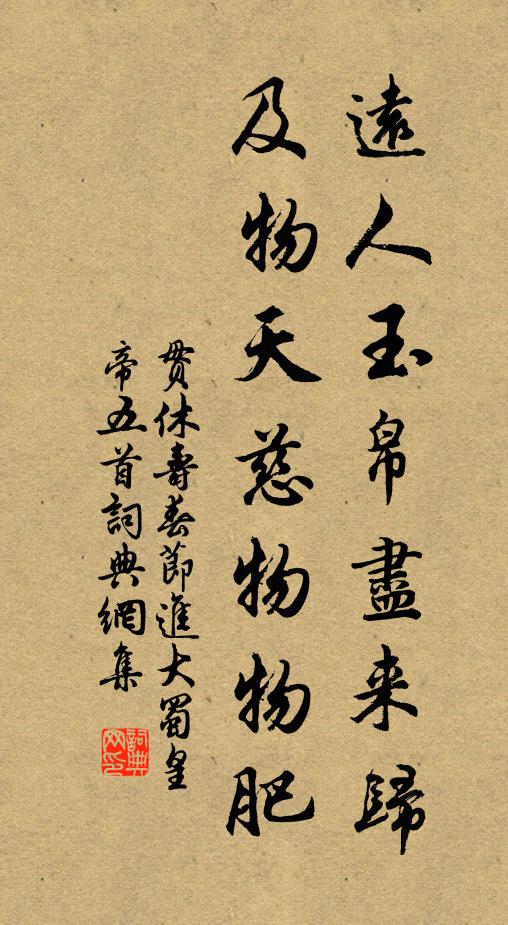 遠人玉帛盡来歸
及物天慈物物肥
貫休壽春節進大蜀皇
帝五首詞典網集
詞典网印